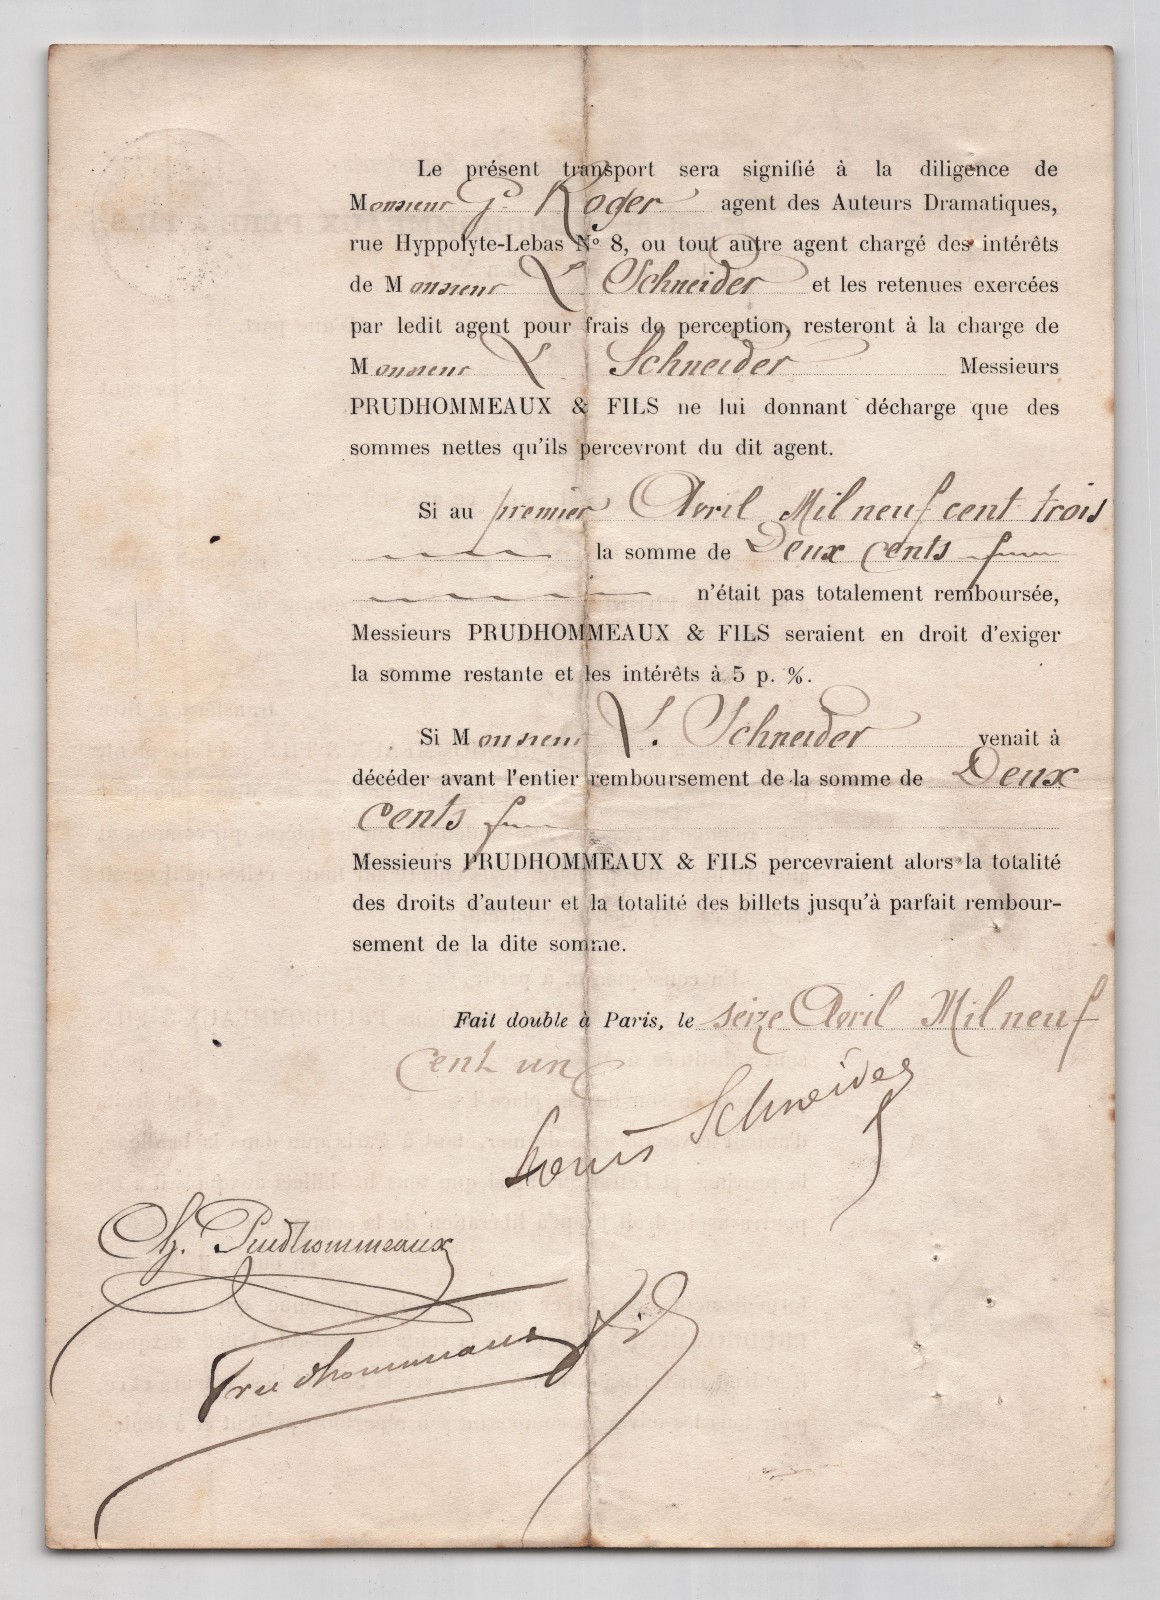 Le présent transport sera signifié à la diligence de
Monsieur G. Roger agent des Auteurs Dramatiques,
rue Hyppolyte-Lebas No 8, ou tout autre agent chargé des intérêts
de Monsieur L. Schneider et les retenues exercées
par ledit agent pour frais de perception, resteront à la charge de
Monsieur L. Schneider Messieurs
PRUDHOMMEAUX & FILS ne lui donnant décharge que des
sommes nettes qu'ils percevront du dit agent.
Si au premier Avril Mil neuf cent trois
la somme de Deux cents f
n'était pas totalement remboursée,
Messieurs PRUDHOMMEAUX & FILS seraient en droit d'exiger
la somme restante et les intérêts à 5 p. %.
Si Monsieur L. Schneider venait à
décéder avant l'entier remboursement de la somme de Deux
cents f
Messieurs PRUDHOMMEAUX & FILS percevraient alors la totalité
des droits d'auteur et la totalité des billets jusqu'à parfait rembour-
sement de la dite somme.
Fait double à Paris, le seize Avril Mil neuf
cent un
Louis Schneider
Ch. Prudhommeaux
Prudhommeaux Fils